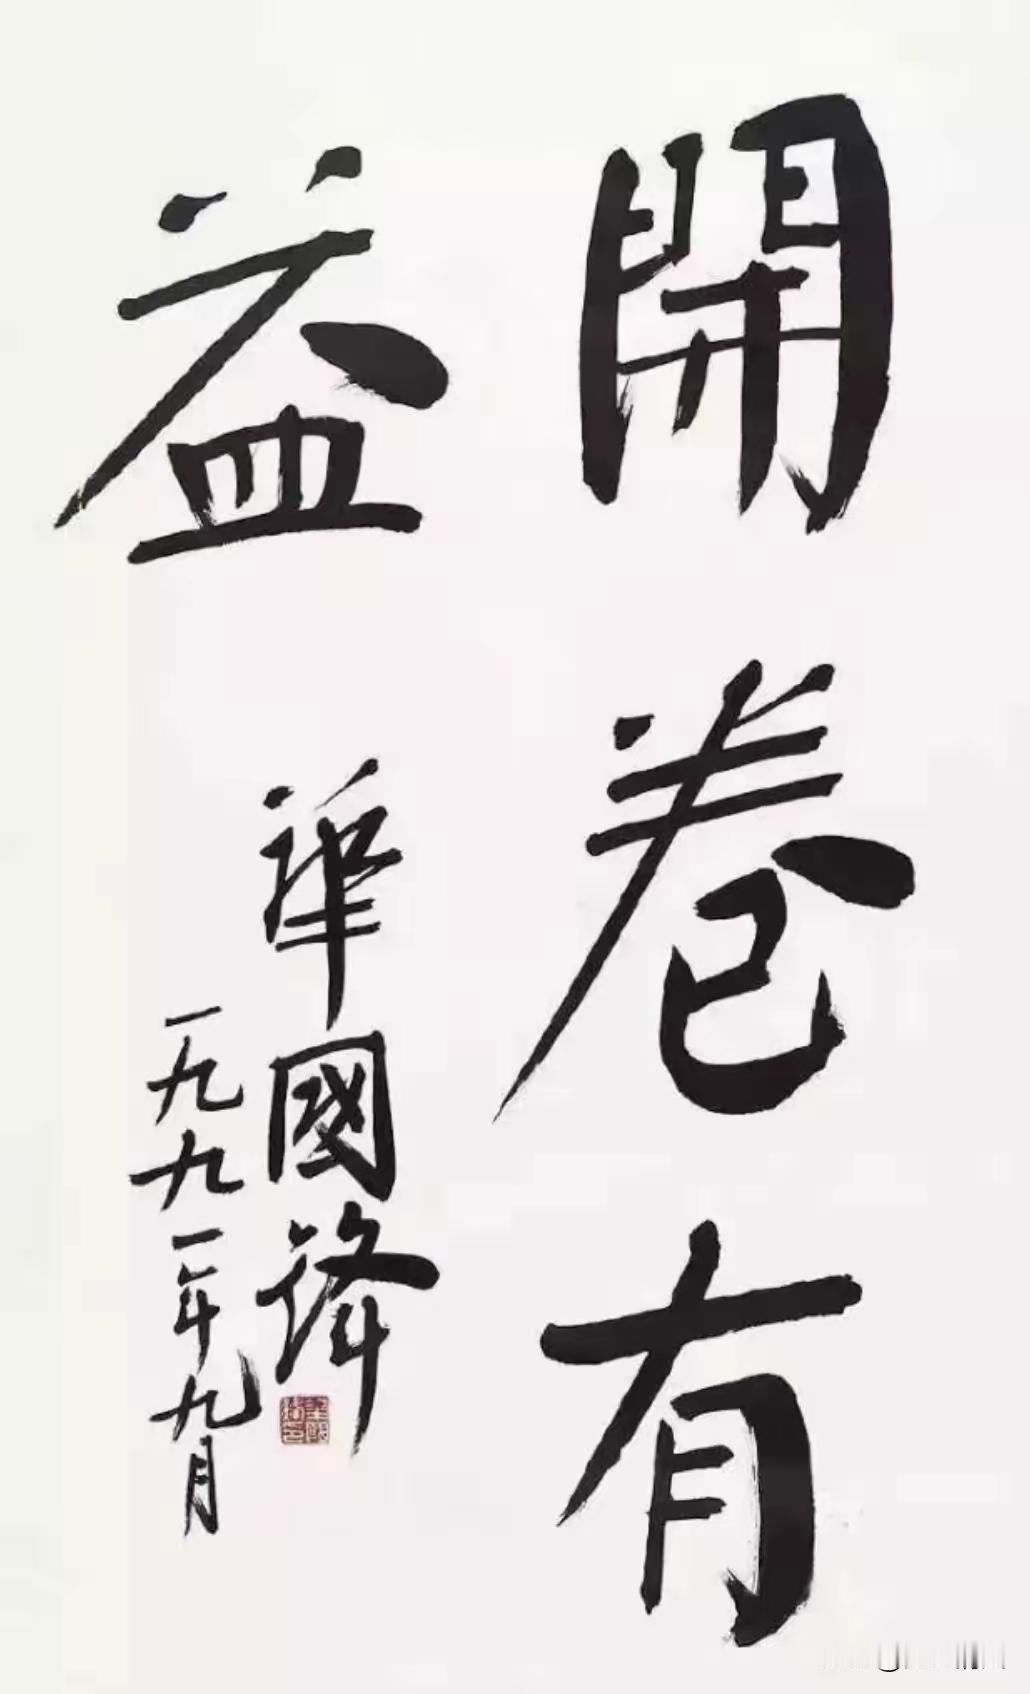 開卷有
益
華國鋒
一九九一年九月